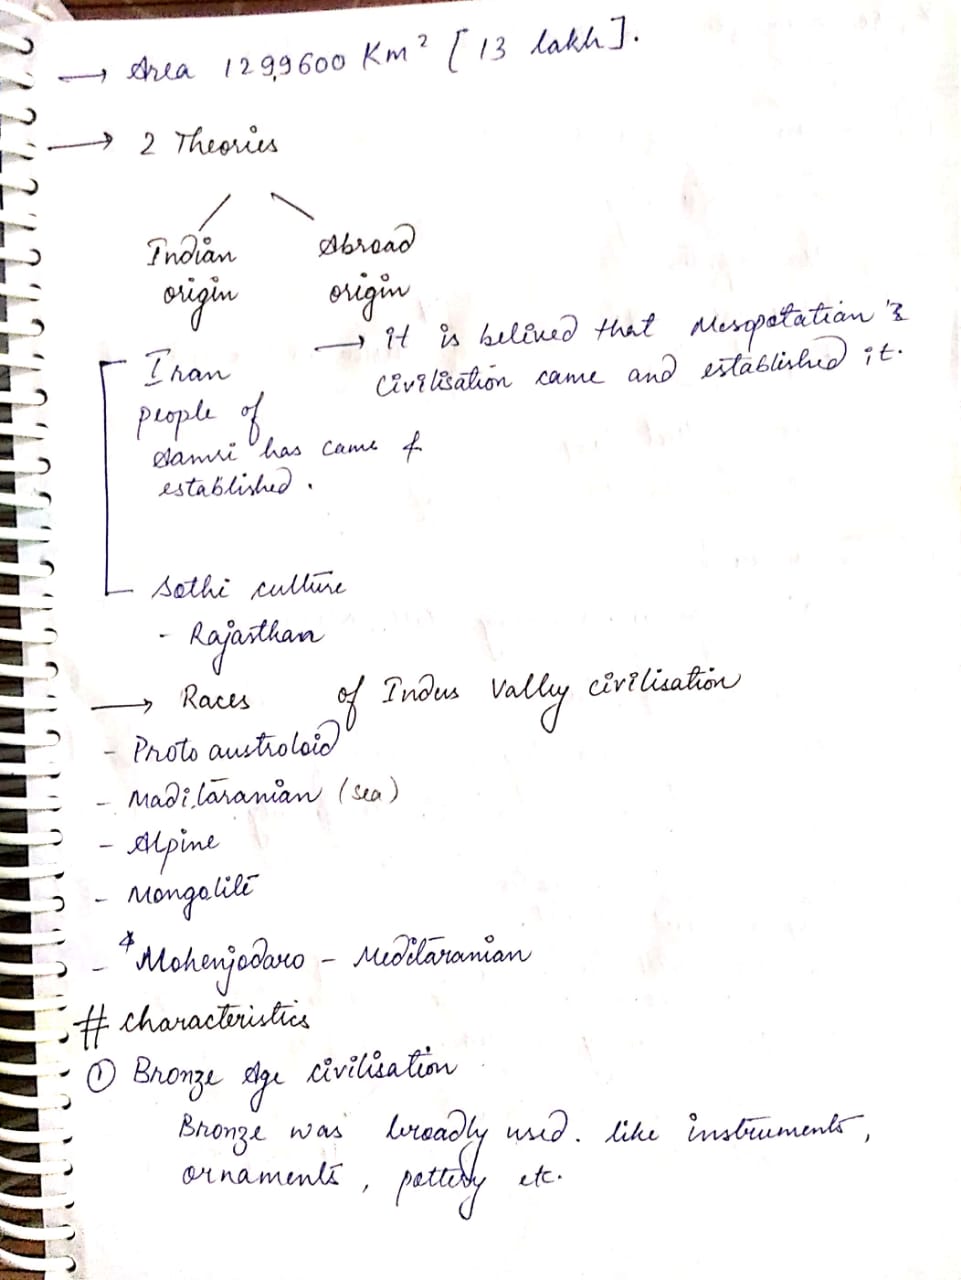 → Area 12,99600 Km² [13 lakh].
→ 2 Theories
Indian origin
Abroad origin
→ it is belived that Mesopotation's
civilisation came and established it.
Iran
people of
Samri has came &
established.
Sothi culture
- Rajasthan
→ Races of Indus Vally civilisation
- Proto austroloid
- Maditaranian (sea)
- Alpine
- Mongolite
- * Mohenjodaro - Meditaranian
# characteristics
① Bronze Age civilisation
Bronze was broadly used. like instruments,
ornaments, pottery etc.